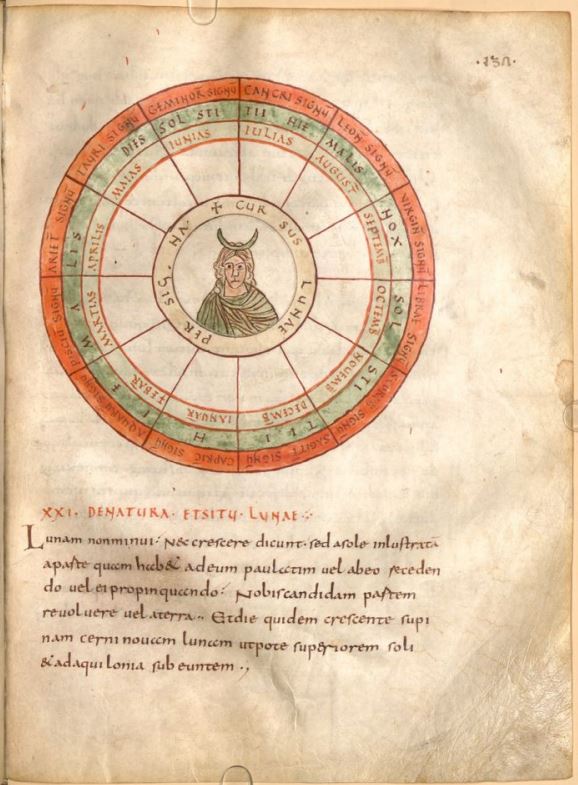 GEMINOR SIGNŪ
CANCRI SIGNŪ
LEON SIGNŪ
VIRGIN SIGNŪ
LIBRAE SIGNŪ
SIGNŪ
SAGITT SIGNŪ
CAPRIC SIGNŪ
SIGNŪ
PISCIŪ SIGNŪ
ARIET SIGNŪ
TAURI SIGNŪ
DIES SOL STI TII HIE MALIS
NOX SOL STI TI I HI E M A LIS
IUNIAS
IULIAS
AUGUST
SEPTEMB
OCTEMB
NOUEMB
DECEMB
IANUAR
FEBAR
MARTIAS
APRILIS
MAIAS
✝ CUR SUS LUNAE PER SIG. NA.
XXI· DENATURA· ETSITU· LUNAE
Lunam nonminui· Neccrescere dicunt· sed asole inlustrata
aparte quam habet adeum paulatim vel abeo seceden
do vel eipropinquando· Nobiscandidam partem
revolvere vel aterra·· Etdie quidem crescente supi
nam cerni novam lunam utpote superiorem soli
& adaquilonia subeuntem·,